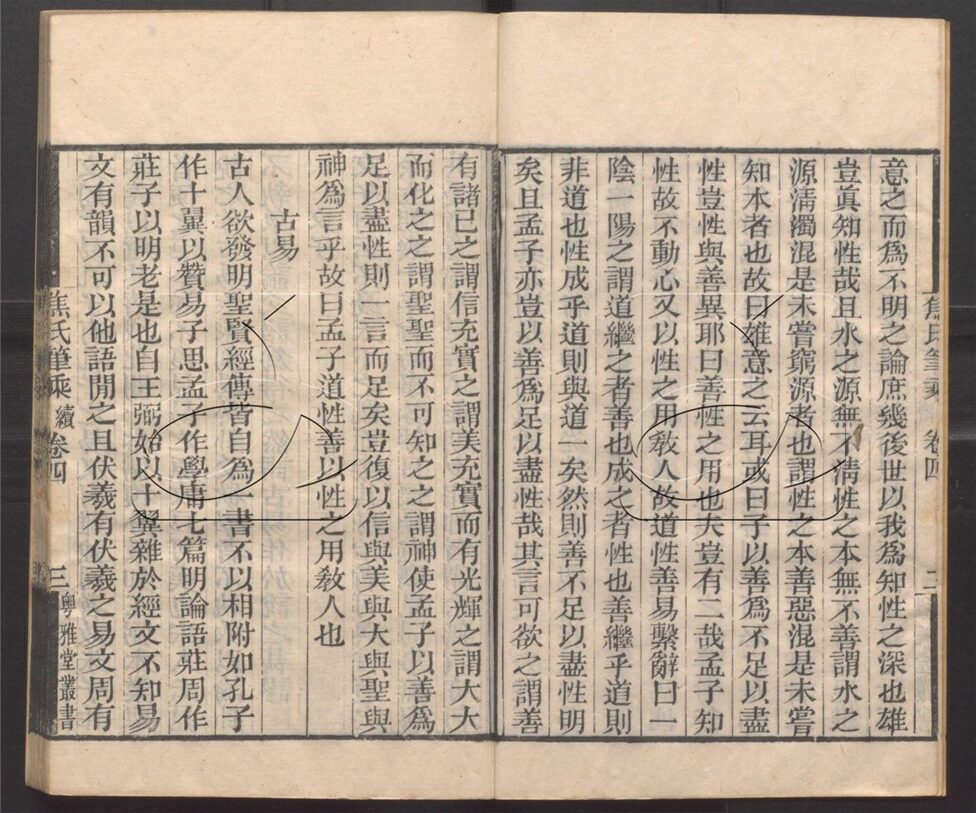 焦氏筆乘 卷四 二
意之而為不明之論庶幾後世以我為知性之深也雄
豈真知性哉且水之源無不清性之本無不善謂水之
源清濁混是未嘗窮源者也謂性之本善惡混是未嘗
知本者也故曰雄意之云耳或曰子以善為不足以盡
性豈性與善異耶曰善性之用也夫豈有二哉孟子知
性故不動心又以性之用教人故道性善易繫辭曰一
陰一陽之謂道繼之者善也成之者性也善繼乎道則
非道也性成乎道則與道一矣然則善不足以盡性明
矣且孟子亦豈以善為足以盡性哉其言可欲之謂善
有諸己之謂信充實之謂美充實而有光輝之謂大大
而化之之謂聖聖而不可知之之謂神使孟子以善為
足以盡性則一言而足矣豈復以信與美與大與聖與
神為言乎故曰孟子道性善以性之用教人也
古易
古人欲發明聖賢經傳皆自為一書不以相附如孔子
作十翼以贊易子思孟子作學庸七篇明論語莊周作
莊子以明老是也自王弼始以十翼雜於經文不知易
文有韻不可以他語閒之且伏羲有伏羲之易文周有
焦氏筆乘 續 卷四 三 粵雅堂叢書